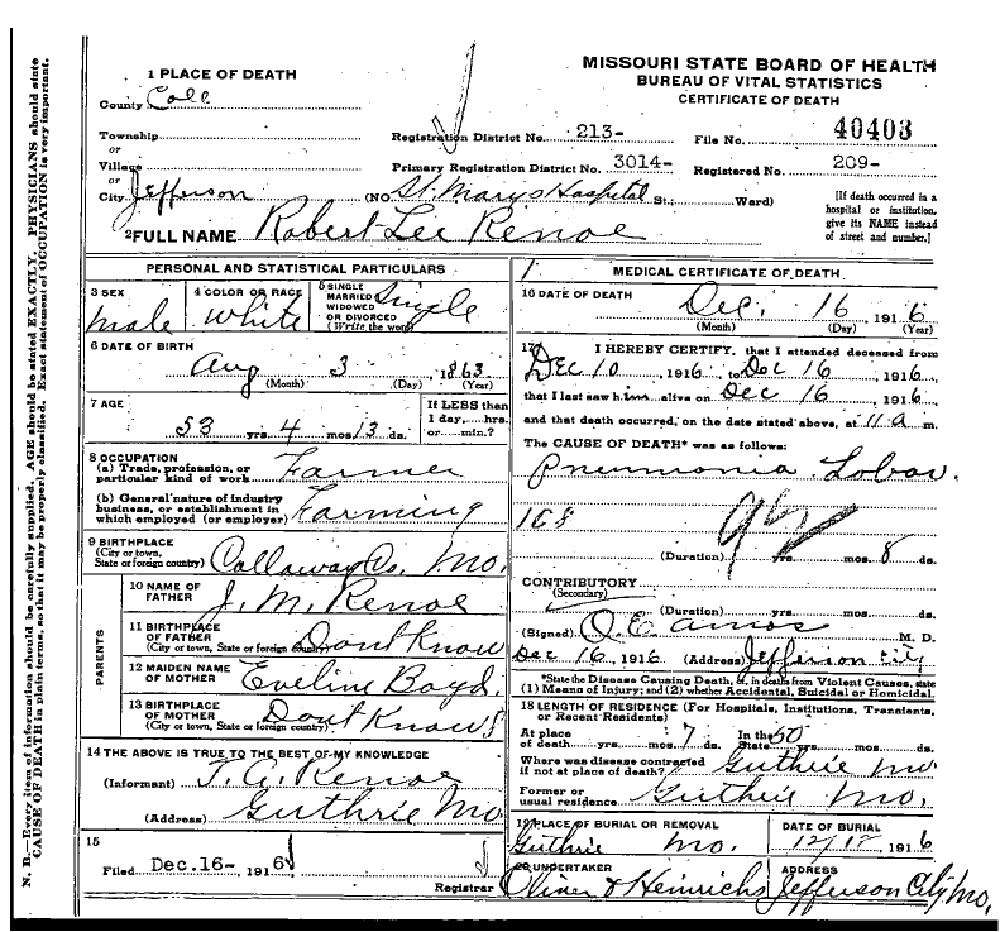 MISSOURI STATE BOARD OF HEALTH
BUREAU OF VITAL STATISTICS
CERTIFICATE OF DEATH
1 PLACE OF DEATH
County Cole
Township
or
Village
or
City Jefferson (NO. St. Marys Hospital St.; Ward)
Registration District No. 213-
File No. 40403
Primary Registration District No. 3014-
Registered No. 209-
[If death occurred in a
hospital or institution,
give its NAME instead
of street and number.]
2 FULL NAME Robert Lee Renoe
PERSONAL AND STATISTICAL PARTICULARS
3 SEX
Male
4 COLOR OR RACE
White
5 SINGLE
MARRIED
WIDOWED
OR DIVORCED
(Write the word)
Single
6 DATE OF BIRTH
Aug 3, 1863
(Month) (Day) (Year)
7 AGE
53 yrs. 4 mos. 13 ds.
If LESS than
1 day,....hrs.
or.....min.?
8 OCCUPATION
(a) Trade, profession, or
particular kind of work Farmer
(b) General nature of industry
business, or establishment in
which employed (or employer) Farming
9 BIRTHPLACE
(City or town,
State or foreign country) Callaway Co. Mo.
PARENTS
10 NAME OF
FATHER J. M. Renoe
11 BIRTHPLACE
OF FATHER
(City or town, State or foreign country) Dont Know
12 MAIDEN NAME
OF MOTHER Eveline Boyd
13 BIRTHPLACE
OF MOTHER
(City or town, State or foreign country) Dont Know
14 THE ABOVE IS TRUE TO THE BEST OF MY KNOWLEDGE
(Informant) T. A. Renoe
(Address) Guthrie Mo
15
Filed Dec.16-, 1916
Registrar
MEDICAL CERTIFICATE OF DEATH
16 DATE OF DEATH
Dec. 16, 1916
(Month) (Day) (Year)
17 I HEREBY CERTIFY, that I attended deceased from
Dec 10, 1916, to Dec 16, 1916
that I last saw him alive on Dec 16, 1916,
and that death occurred, on the date stated above, at 11 a m.
The CAUSE OF DEATH* was as follows:
Pneumonia Lobar.
108
(Duration) yrs. mos. 8 ds.
CONTRIBUTORY
(Secondary)
(Duration) yrs. mos. ds.
(Signed) O. E. Amos M. D.
Dec 16, 1916 (Address) Jefferson City
*State the Disease Causing Death, or, in deaths from Violent Causes, state
(1) Means of Injury; and (2) whether Accidental, Suicidal or Homicidal.
18 LENGTH OF RESIDENCE (For Hospitals, Institutions, Transients,
or Recent Residents)
At place
of death yrs. mos. 7 ds.
In the
State 50 yrs. mos. ds.
Where was disease contracted
if not at place of death? Guthrie Mo.
Former or
usual residence Guthrie Mo.
19 PLACE OF BURIAL OR REMOVAL
Guthrie Mo.
DATE OF BURIAL
1916
20 UNDERTAKER
Oliver & Heinrichs
ADDRESS
Jefferson City Mo.
N. B.—Every item of information should be carefully supplied. AGE should be stated EXACTLY. PHYSICIANS should state
CAUSE OF DEATH in plain terms, so that it may be properly classified. Exact statement of OCCUPATION is very important.